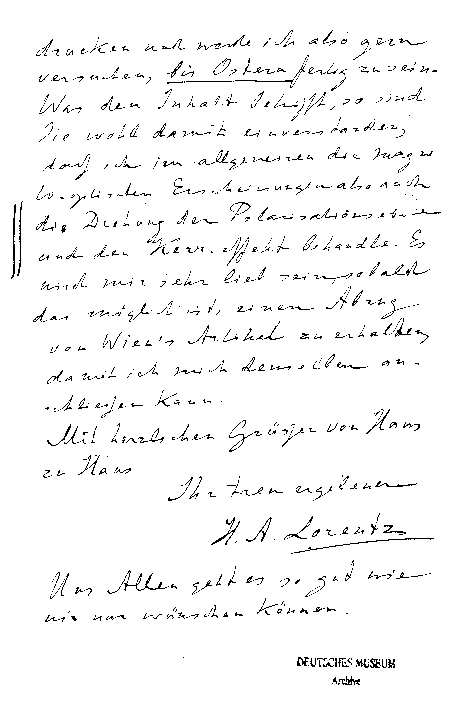 drucken und werde ich also gern
versuchen, bis Ostern fertig zu sein.
Was den Inhalt betrifft, so sind
Sie wohl damit einverstanden,
dass ich im allgemeinen die magne
to-optischen Erscheinungen also auch
die Drehung der Polarisationsebene
und den Kerr-effekt behandle. Es
wird mir sehr lieb sein, sobald
das möglich ist, einen Abzug
von Wien's Artikel zu erhalten,
damit ich mich demselben an-
schliessen kann.
Mit herzlichen Grüssen von Haus
zu Haus
Ihr treu ergebener
H. A. Lorentz
Uns Allen geht es so gut wie
wir nur wünschen können.
DEUTSCHES MUSEUM
Archive